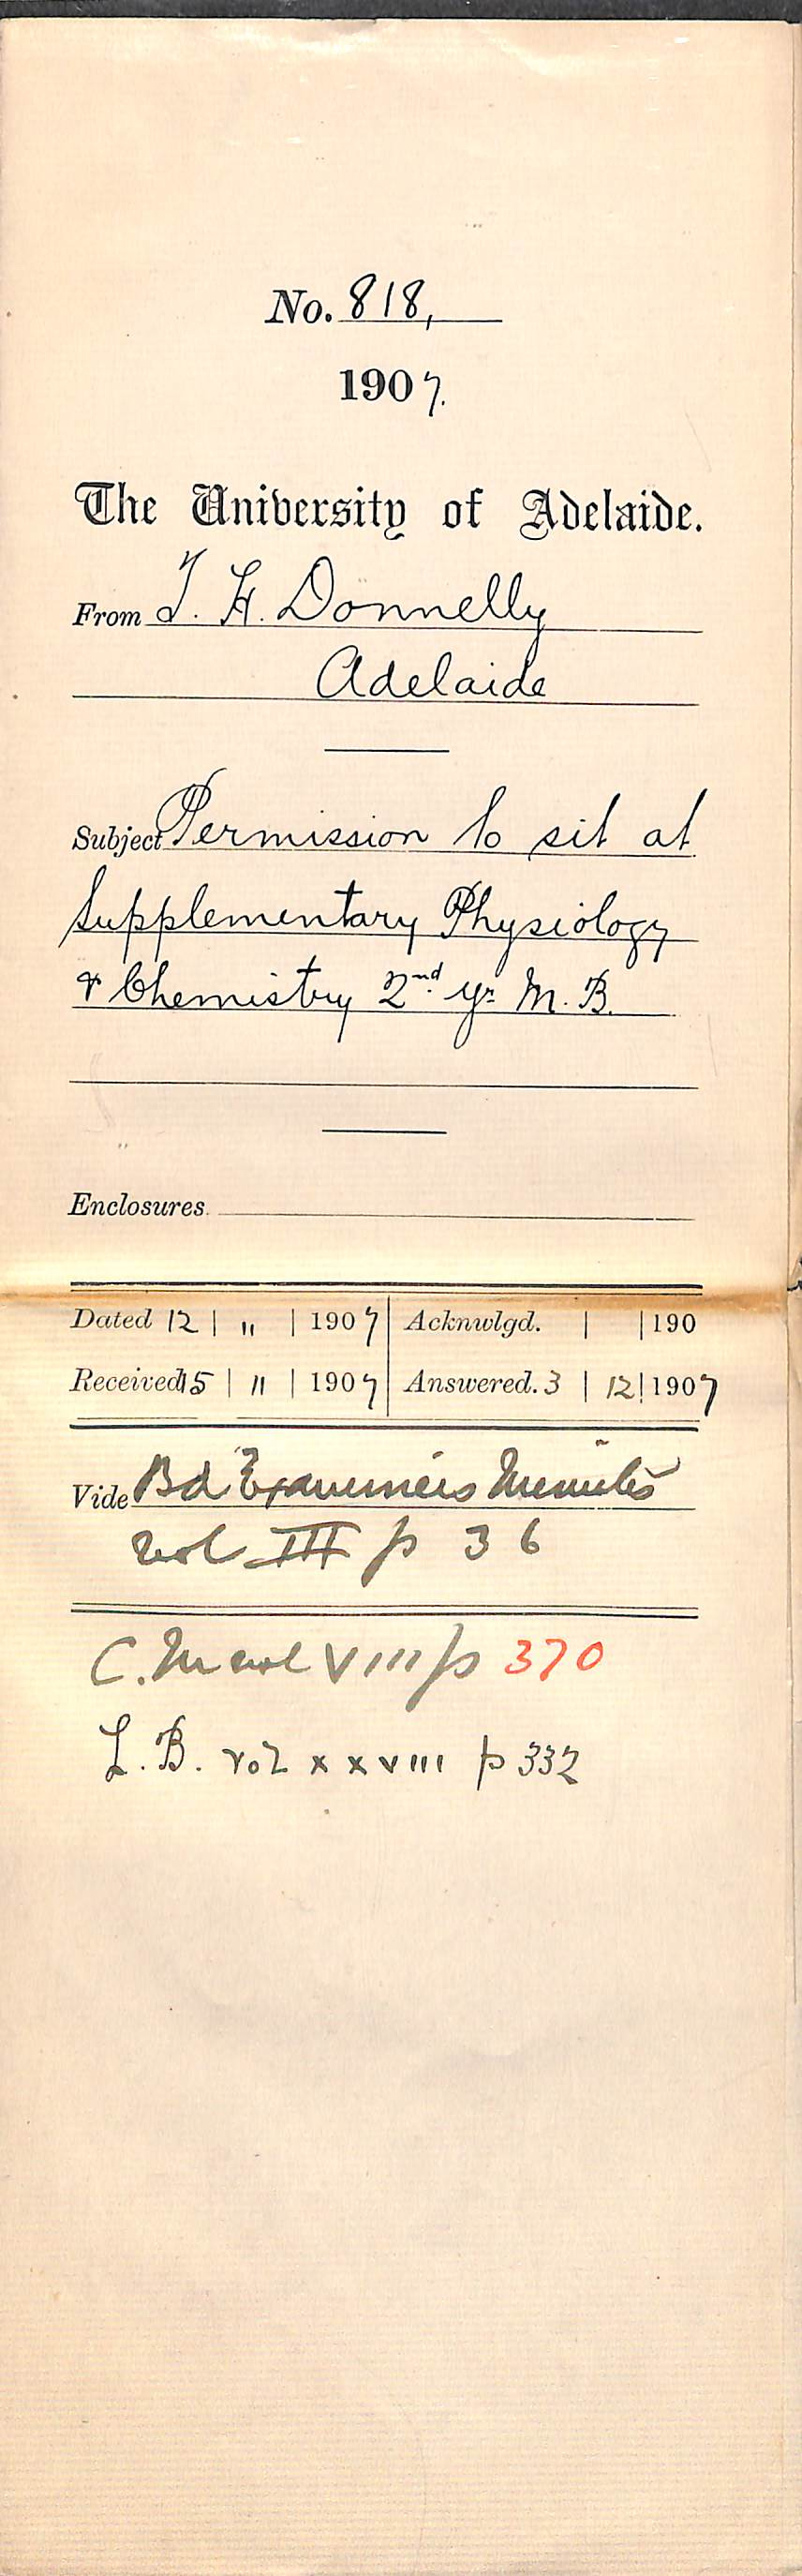 No. 818,
1907.
The University of Adelaide.
From T. H. Donnelly
Adelaide
Subject Permission to sit at
Supplementary Physiology
& Chemistry 2nd yr M. B.
Enclosures.
Dated 12 | 11 | 1907 | Acknwlgd. | | 190
Received 15 | 11 | 1907 | Answered. 3 | 12 | 1907
Vide Bd Examiners Minutes
vol III p 36
C. M vol VIII p 370
L. B. vol xxviii p 332